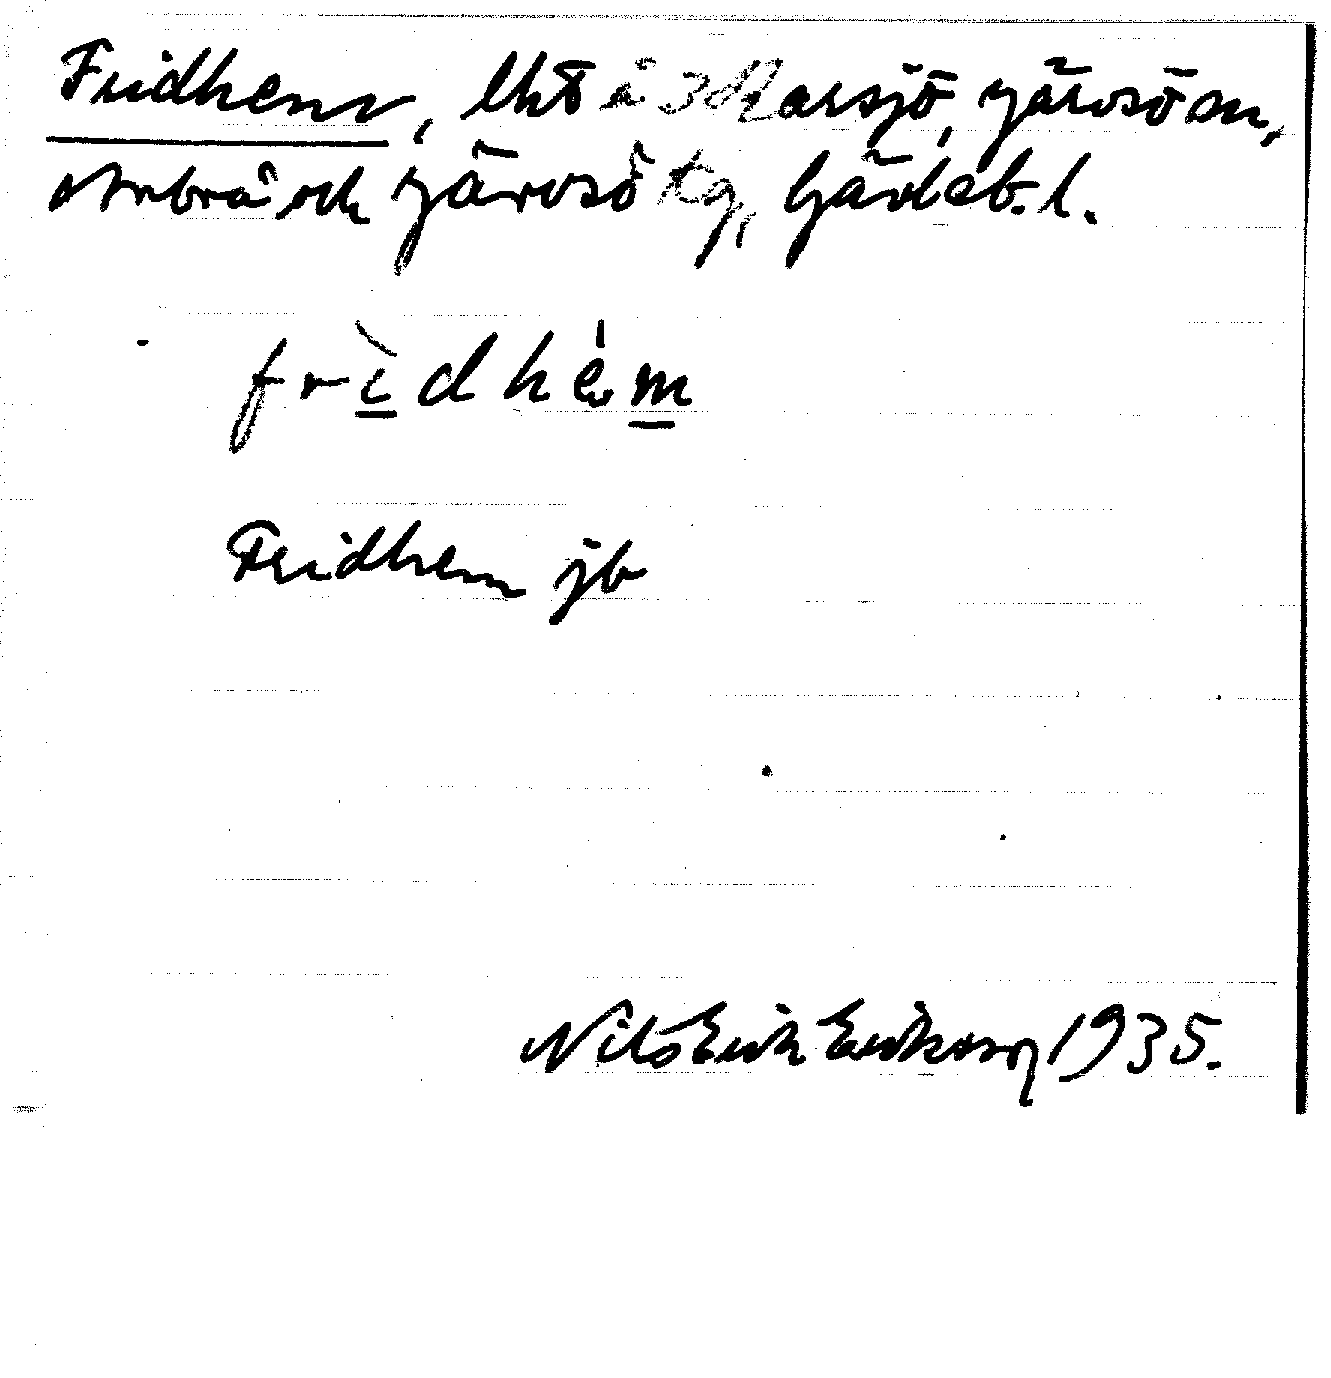 Fridhem, lht å 3 Karsjö, Järvsö sn,
Arbrå och Järvsö tg, Gävleb. l.
frìdhém
Fridhem jb
Nils Erik Eriksson 1935.